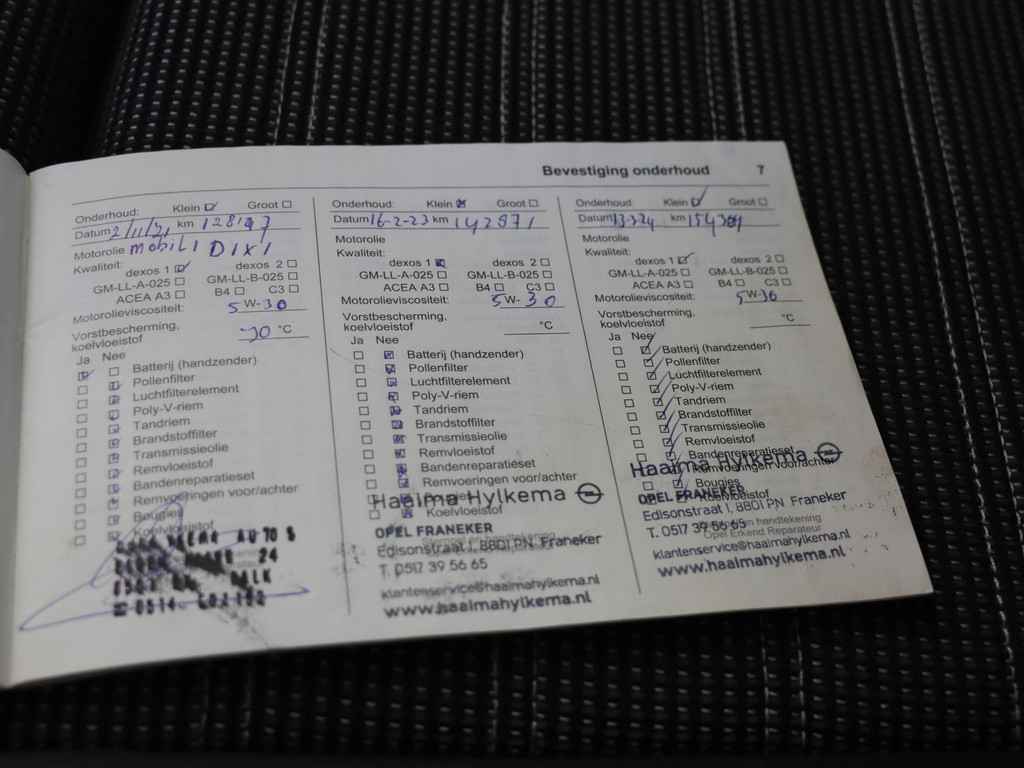 Bevestiging onderhoud 7
Onderhoud: Klein Groot
Datum 2/11/21 km
Motorolie mobil 1 DIXI
Kwaliteit:
dexos 1 dexos 2
GM-LL-A-025 GM-LL-B-025
ACEA A3 B4 C3
Motorolieviscositeit: 5 W- 30
Vorstbescherming,
koelvloeistof °C
Ja Nee
Batterij (handzender)
Pollenfilter
Luchtfilterelement
Poly-V-riem
Tandriem
Brandstoffilter
Transmissieolie
Remvloeistof
Bandenreparatieset
Remvoeringen voor/achter
Bougies
Koelvloeistof
24
BALK
0514
Onderhoud: Klein Groot
Datum 16-2-23 km 142871
Motorolie
Kwaliteit:
dexos 1 dexos 2
GM-LL-A-025 GM-LL-B-025
ACEA A3 B4 C3
Motorolieviscositeit: 5 W- 30
Vorstbescherming,
koelvloeistof °C
Ja Nee
Batterij (handzender)
Pollenfilter
Luchtfilterelement
Poly-V-riem
Tandriem
Brandstoffilter
Transmissieolie
Remvloeistof
Bandenreparatieset
Remvoeringen voor/achter
Haaima Hylkema
Koelvloeistof
OPEL FRANEKER
Edisonstraat 1, 8801 PN Franeker
T. 0517 39 56 65
klantenservice@haaimahylkema.nl
www.haaimahylkema.nl
Onderhoud: Klein Groot
Datum 13-3-24 km
Motorolie
Kwaliteit:
dexos 1 dexos 2
GM-LL-A-025 GM-LL-B-025
ACEA A3 B4 C3
Motorolieviscositeit: 5 W- 30
Vorstbescherming,
koelvloeistof °C
Ja Nee
Batterij (handzender)
Pollenfilter
Luchtfilterelement
Poly-V-riem
Tandriem
Brandstoffilter
Transmissieolie
Remvloeistof
Bandenreparatieset
Haaima Hylkema
Remvoeringen voor/achter
Bougies
OPEL FRANEKER
Koelvloeistof
Edisonstraat 1, 8801 PN Franeker
T. 0517 39 56 65
handtekening
Opel Erkend Reparateur
klantenservice@haaimahylkema.nl
www.haaimahylkema.nl